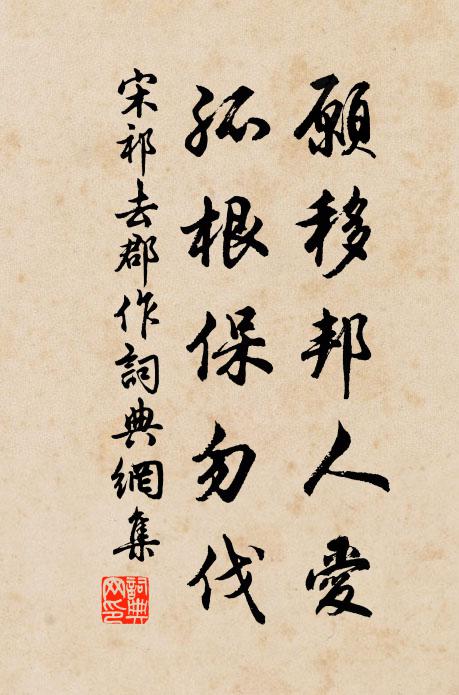 願移邦人愛
孤根保勿伐
宋祁去郡作詞典網集
詞典網印